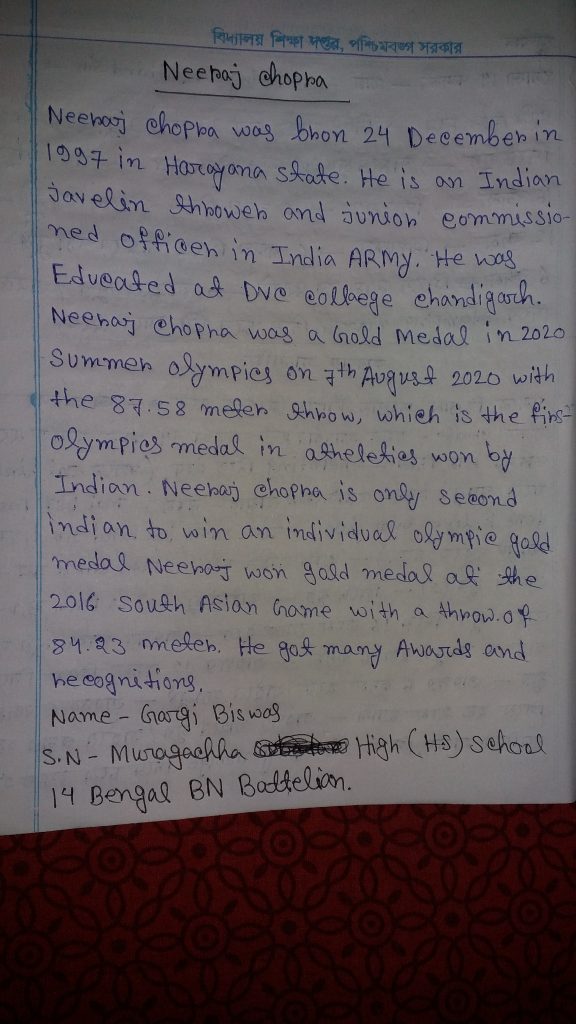 বিদ্যালয় শিক্ষা দপ্তর, পশ্চিমবঙ্গ সরকার
Neeraj chopra
Neeraj chopra was bron 24 December in
1997 in Harayana state. He is an Indian
javelin thrower and junior commissio-
ned officer in India ARMy. He was
Educated at DVC collaege chandigarh.
Neeraj chopra was a Gold Medal in 2020
Summer olympics on 7th August 2020 with
the 87.58 meter throw, which is the first
olympics medal in atheletics won by
Indian. Neeraj chopra is only second
indian to win an individual olympic gold
medal Neeraj won gold medal at the
2016 South Asian Game with a throw of
84.23 meter. He got many Awards and
recognitions.
Name - Gargi Biswas
S.N - Muragachha High (HS) School
14 Bengal BN Battelian.